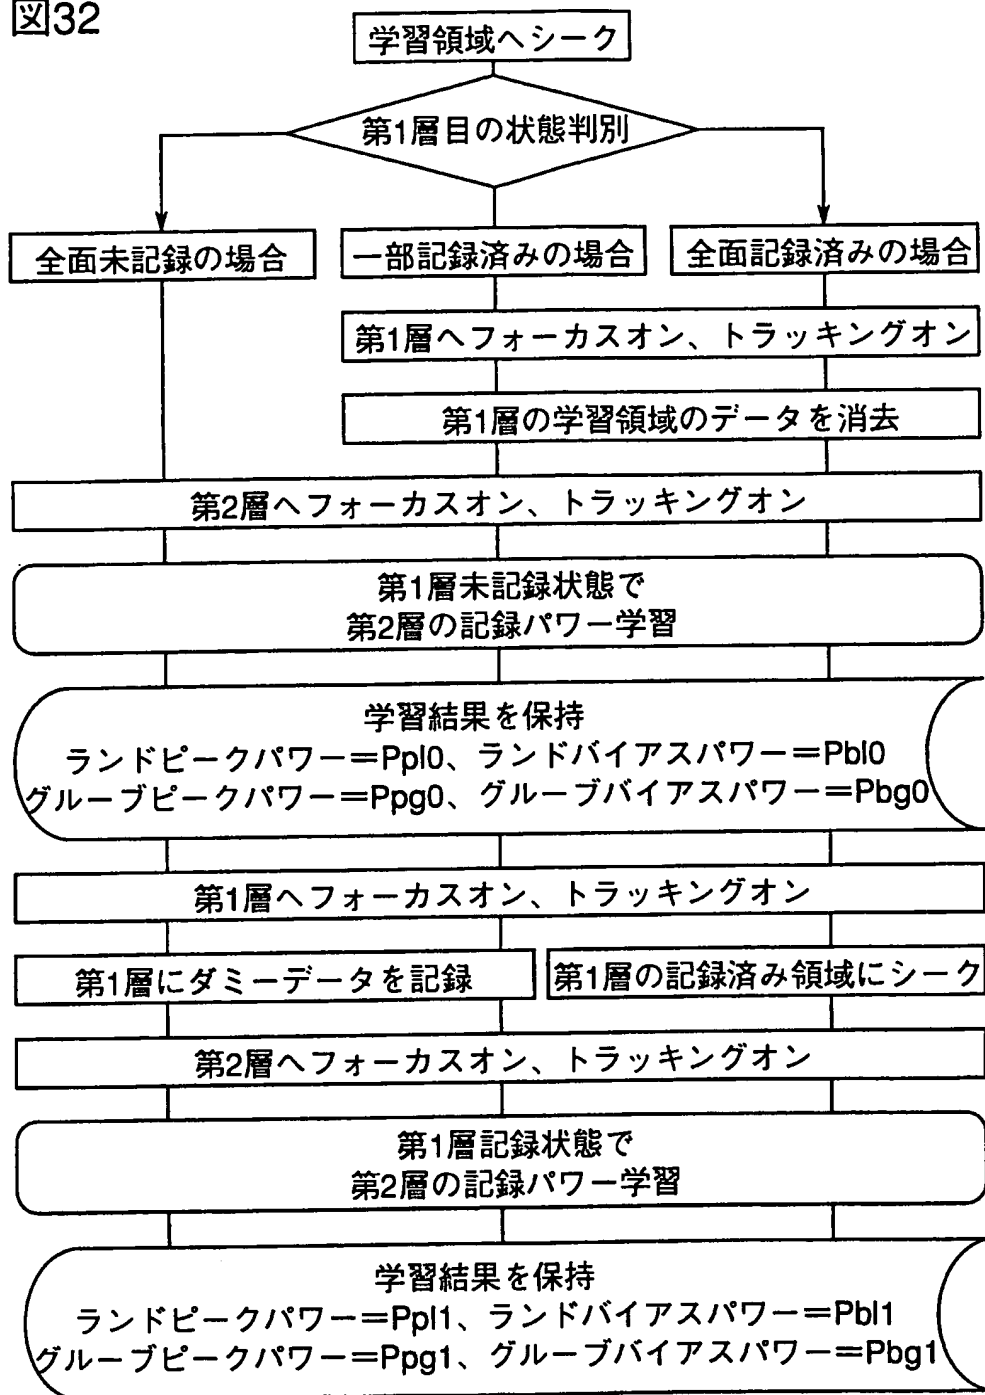 図32
学習領域へシーク
第1層目の状態判別
全面未記録の場合
一部記録済みの場合
全面記録済みの場合
第1層へフォーカスオン、トラッキングオン
第1層の学習領域のデータを消去
第2層へフォーカスオン、トラッキングオン
第1層未記録状態で
第2層の記録パワー学習
学習結果を保持
ランドピークパワー＝Ppl0、ランドバイアスパワー＝Pbl0
グルーブピークパワー＝Ppg0、グルーブバイアスパワー＝Pbg0
第1層へフォーカスオン、トラッキングオン
第1層にダミーデータを記録
第1層の記録済み領域にシーク
第2層へフォーカスオン、トラッキングオン
第1層記録状態で
第2層の記録パワー学習
学習結果を保持
ランドピークパワー＝Ppl1、ランドバイアスパワー＝Pbl1
グルーブピークパワー＝Ppg1、グルーブバイアスパワー＝Pbg1